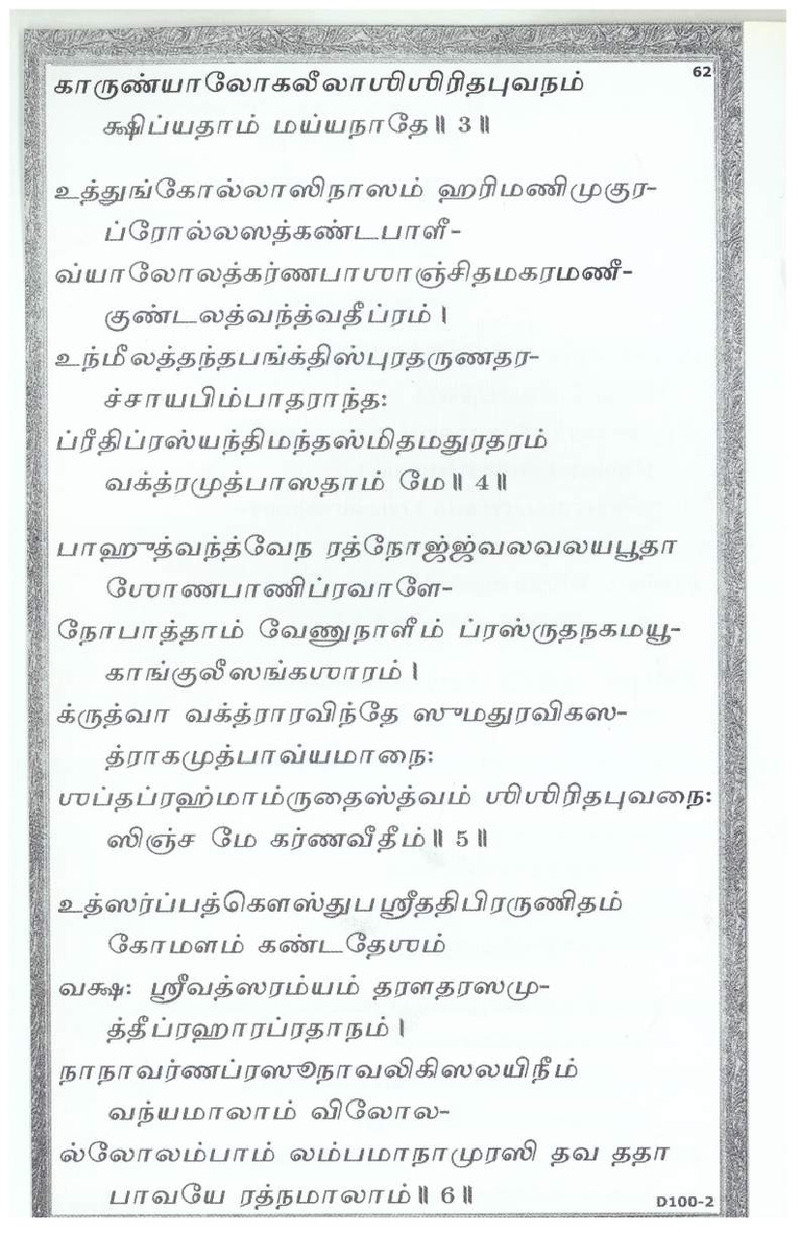 62
காருண்யாலோகலீலாஶிஶிரிதபுவநம்
க்ஷிப்யதாம் மய்யநாதே॥ 3॥
உத்துங்கோல்லாஸிநாஸம் ஹரிமணிமுகுர-
ப்ரோல்லஸத்கண்டபாளீ-
வ்யாலோலத்கர்ணபாஶாஞ்சிதமகரமணீ-
குண்டலத்வந்த்வதீப்ரம்।
உந்மீலத்தந்தபங்க்திஸ்புரதருணதர-
ச்சாயபிம்பாதராந்த:
ப்ரீதிப்ரஸ்யந்திமந்தஸ்மிதமதுரதரம்
வக்த்ரமுத்பாஸதாம் மே॥ 4॥
பாஹுத்வந்த்வேந ரத்நோஜ்ஜ்வலவலயபூதா
ஶோணபாணிப்ரவாளே-
நோபாத்தாம் வேணுநாளீம் ப்ரஸ்ருதநகமயூ-
காங்குலீஸங்கஶாரம்।
க்ருத்வா வக்த்ராரவிந்தே ஸுமதுரவிகஸ-
த்ராகமுத்பாவ்யமாநை:
ஶப்தப்ரஹ்மாம்ருதைஸ்த்வம் ஶிஶிரிதபுவநை:
ஸிஞ்ச மே கர்ணவீதீம்॥ 5॥
உத்ஸர்ப்பத்கௌஸ்துபஸ்ரீததிபிரருணிதம்
கோமளம் கண்டதேஶம்
வக்ஷ: ஸ்ரீவத்ஸரம்யம் தரளதரஸமு-
த்தீப்ரஹாரப்ரதாநம்।
நாநாவர்ணப்ரஸூநாவலிகிஸலயிநீம்
வந்யமாலாம் விலோல-
ல்லோலம்பாம் லம்பமாநாமுரஸி தவ ததா
பாவயே ரத்நமாலாம்॥ 6॥
D100-2